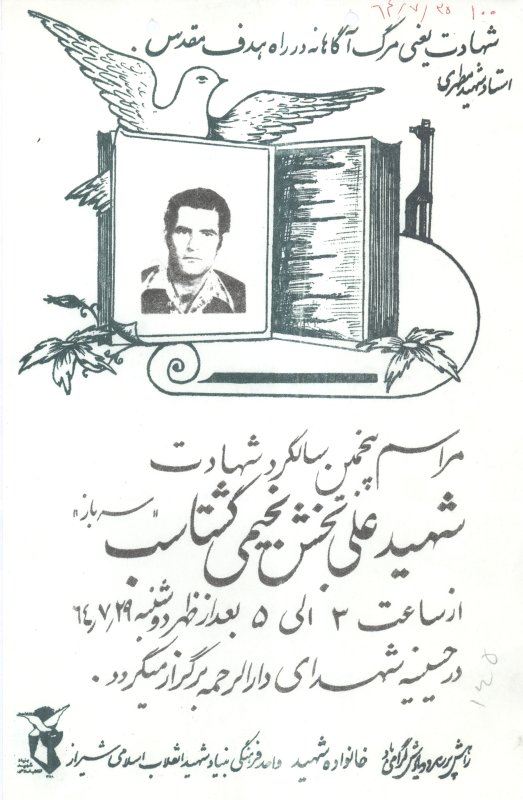 ۶۴/۷/۲۵ ۱۰۰
شهادت یعنی مرگ آگاهانه در راه هدف مقدس .
استاد شهید مطهری
مراسم پنجمین سالگرد شهادت
شهید علی بخش نجیمی گشتاسب "سرباز"
از ساعت ۳ الی ۵ بعد از ظهر دوشنبه ۶۴٫۷٫۲۹
در حسینیه شهدای دارالرحمه برگزار میگردد .
۱۴۵
راهش پررهرو و یادش گرامی باد خانواده شهید واحد فرهنگی بنیاد شهید انقلاب اسلامی شیراز